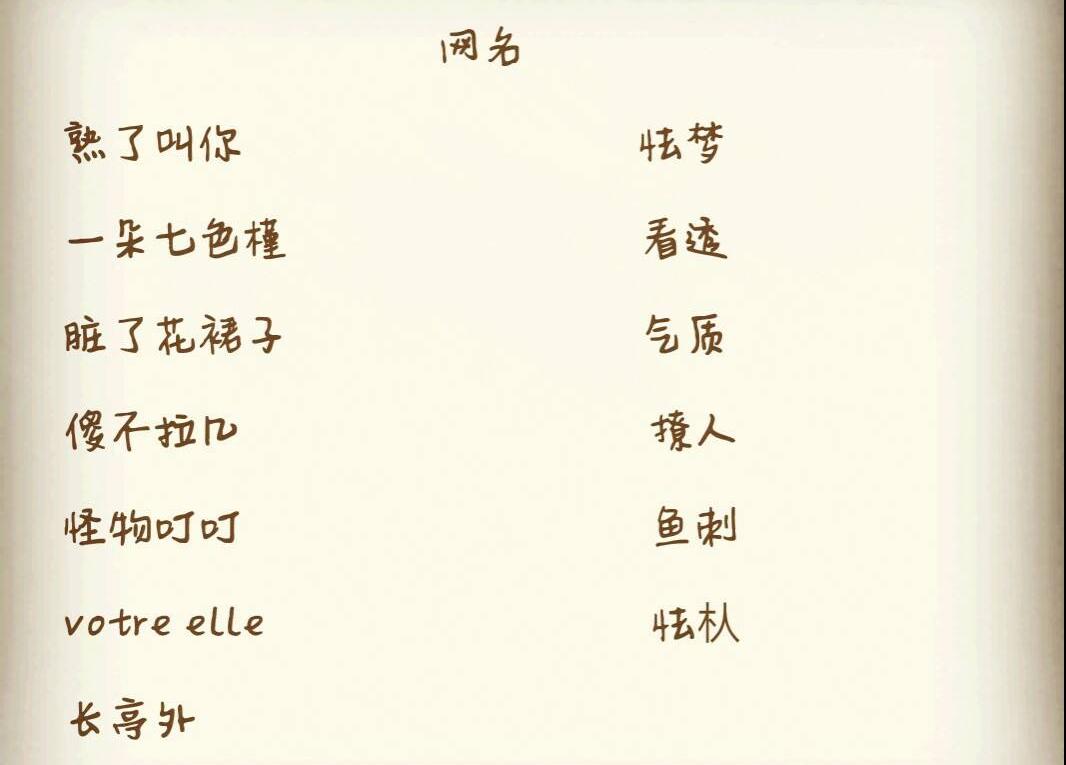 网名
熟了叫你 怯梦
一朵七色槿 看透
脏了花裙子 气质
傻不拉几 撩人
怪物叮叮 鱼刺
votre elle 怯朲
长亭外